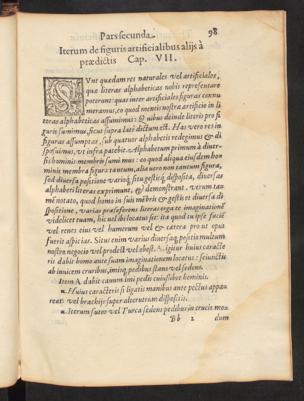 Pars secunda. 98
Iterum de figuris artificialibus alijs à
prædictis Cap. VII.
SVnt quædam res naturales vel artificiales,
quæ literas alphabeticas nobis repræsentare
poterunt: quas inter artificiales figuras connu
meramus, eo quod mentis nostræ artificio in li
teras alphabeticas assumimus: Quibus deinde literis pro fi
guris sumimus, sicut supra latè dictum est. Has vero res in
figuras assumptas, sub quatuor alphabetis redegimus & di
sposuimus, vt infra patebit. Alphabetum primum à diuer-
sis hominis membris sumimus: eo quod aliqua eiusdem ho
minis membra figura tantum, alia vero non tantum figura,
sed diuersa positione varioq; situ gestuq; disposita, diuersas
alphabeti literas exprimunt, & demonstrant. verum tau
mē notato, quod homo in suis mēbris & gestis et diuersa di
spositione, varias præferens literas erga te imaginatione
videlicet tuam, hic vel ibi locatus sit: ita quod tu ipse facie
vel renes eius vel humerum vel & cætera pro vt opus
fuerit aspicias. Situs enim varius diuersaq; positio multum
nostro negocio vel prodest vel obest. Igitur huius caracte
ris dabit homo ante suam imaginationem locatus: seiunctis
ab inuicem cruribus, iminq; pedibus stans vel sedens.
Item A dabit canum imi pedis cuiuslibet hominis.
Huius caracteris si ligatis manibus ante pectus appau
reat: vel brachijs super alterutrum dispositis.
Iterum sutor vel Turca sedens pedibus in crucis mou
Bb 2 dum